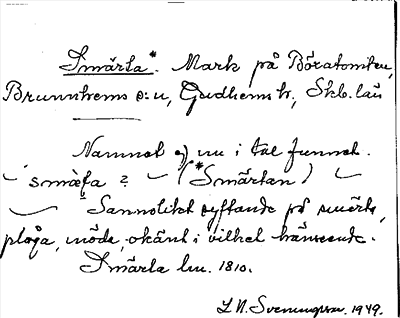 Smärta*. Mark påBöratomten,
Brunnhems s:n, Gudhems h., Skb. län
Namnet ej nu i tal funnet.
smäfa? (*Smärtan)
? Sannolikt syftande på smärta,
plåga, möda, okänt i vilket hänseende.
Smärta lm. 1810.
L. N. Svenungsson. 1949.